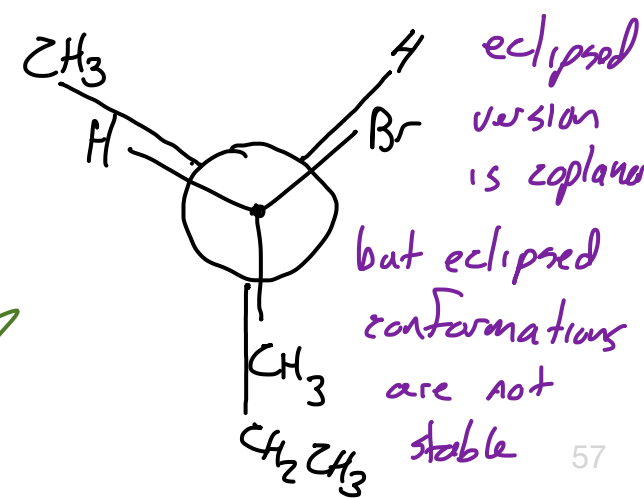 CH3
H
H
Br
CH3
CH2CH3
eclipsed
version
is coplanar
but eclipsed
conformations
are not
stable
57